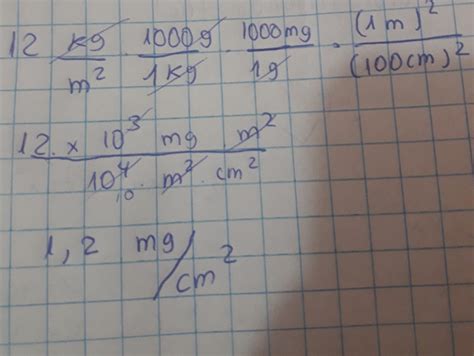 12 kg/m² · 1000g/1kg · 1000mg/1g · (1m)²/(100cm)²
12 · x 10³ mg m² / 10⁴ · m² · cm²
10
1,2 mg/cm²